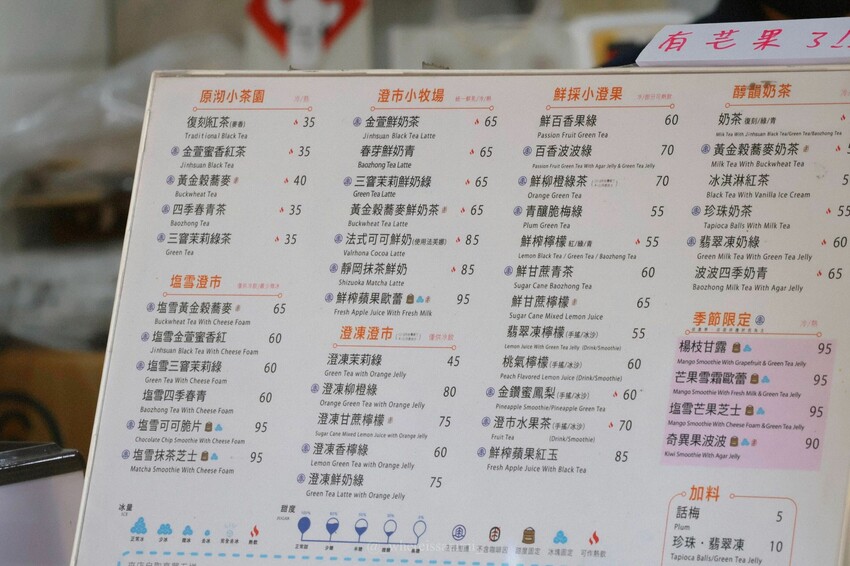 有芒果了!!
原沏小茶園
復刻紅茶(麥香) 35
Traditional Black Tea
金萱蜜香紅茶 35
Jinhsuan Black Tea
黃金穀蕎麥 40
Buckwheat Tea
四季春青茶 35
Baozhong Tea
三窨茉莉綠茶 35
Green Tea
塩雪澄市
塩雪黃金穀蕎麥 65
Buckwheat Tea With Cheese Foam
塩雪金萱蜜香紅 60
Jinhsuan Black Tea With Cheese Foam
塩雪三窨茉莉綠 60
Green Tea With Cheese Foam
塩雪四季春青 60
Baozhong Tea With Cheese Foam
塩雪可可脆片 95
Chocolate Chip Smoothie With Cheese Foam
塩雪抹茶芝士 95
Matcha Smoothie With Cheese Foam
澄市小牧場
金萱鮮奶茶 65
Jinhsuan Black Tea Latte
春芽鮮奶青 65
Baozhong Tea Latte
三窨茉莉鮮奶綠 65
Green Tea Latte
黃金穀蕎麥鮮奶茶 65
Buckwheat Tea Latte
法式可可鮮奶(使用法芙娜) 85
Valrhona Cocoa Latte
靜岡抹茶鮮奶 85
Shizuoka Matcha Latte
鮮榨蘋果歐蕾 95
Fresh Apple Juice With Fresh Milk
澄凍澄市
澄凍茉莉綠 45
Green Tea with Orange Jelly
澄凍柳橙綠 80
Orange Green Tea with Orange Jelly
澄凍甘蔗檸檬 75
Sugar Cane Mixed Lemon Juice with Orange Jelly
澄凍香檸綠 60
Lemon Green Tea with Orange Jelly
澄凍鮮奶綠 75
Green Tea Latte with Orange Jelly
鮮採小澄果
鮮百香果綠 60
Passion Fruit Green Tea
百香波波綠 70
Passion Fruit Green Tea With Agar Jelly & Green Jelly
鮮柳橙綠茶 70
Orange Green Tea
青釀脆梅綠 55
Plum Green Tea
鮮榨檸檬 紅/綠/青 55
Lemon Black Tea / Green Tea / Baozhong Tea
鮮甘蔗青茶 60
Sugar Cane Baozhong Tea
鮮甘蔗檸檬 65
Sugar Cane Mixed Lemon Juice
翡翠凍檸檬(手搖/冰沙) 55
Lemon Juice With Green Tea Jelly (Drink/Smoothie)
桃氣檸檬(手搖/冰沙) 60
Peach Flavored Lemon Juice (Drink/Smoothie)
金鑽蜜鳳梨(手搖/冰沙) 60
Pineapple Smoothie/Pineapple Green Tea
澄市水果茶(手搖/冰沙) 70
Fruit Tea (Drink/Smoothie)
鮮榨蘋果紅玉 85
Fresh Apple Juice With Black Tea
醇韻奶茶
奶茶 復刻/綠/青
Milk Tea With Jinhsuan Black Tea/Green Tea/Baozhong Tea
黃金穀蕎麥奶茶
Milk Tea With Buckwheat Tea
冰淇淋紅茶
Black Tea With Vanilla Ice Cream
珍珠奶茶 55
Tapioca Balls With Milk Tea
翡翠凍奶綠 60
Green Milk Tea With Green Tea Jelly
波波四季奶青 65
Baozhong Milk Tea With Agar Jelly
季節限定
楊枝甘露 95
Mango Smoothie With Grapefruit & Green Tea Jelly
芒果雪霜歐蕾 95
Mango Smoothie With Fresh Milk & Green Tea Jelly
塩雪芒果芝士 95
Mango Smoothie With Cheese Foam & Green Tea Jelly
奇異果波波 90
Kiwi Smoothie With Agar Jelly
加料
話梅 5
Plum
珍珠・翡翠凍 10
Tapioca Balls/Green Tea Jelly
冰量
ICE
正常冰 少冰 微冰 去冰 完全去冰 熱飲
甜度
SUGAR
正常甜 少糖 半糖 微糖 無糖
主推 不含咖啡因 甜度固定 冰塊固定 可作熱飲